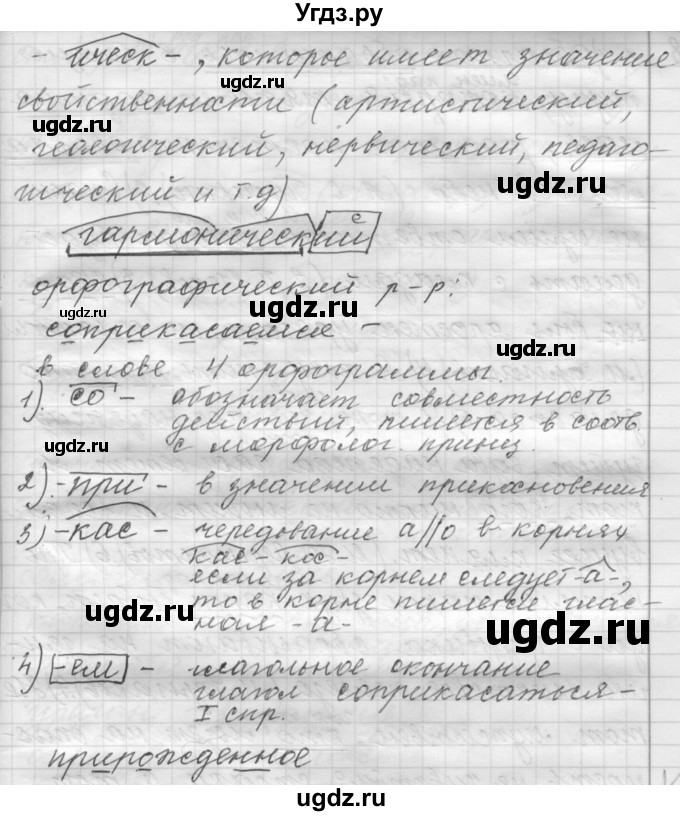 Угдз.ру
-ическ-, которое имеет значение
свойственности (артистический,
ugdz.ru
геологический, нервический, педаго-
ugdz.ru
гический и т.д)
гармонический с
орфографический р-р:
ugdz.ru
соприкасаемся -
ugdz.ru
в слове 4 орфограммы.
1). со - обозначает совместность
действий, пишется в соотв.
ugdz.ru
с морфолог. принц.
2). -при - в значении прикосновения
3) -кас - чередование а//о в корнях
кас-кос-
если за корнем следует -а-,
ugdz.ru
то в корне пишется глас-
ugdz.ru
ная -а-
4) -ем - глагольное окончание
глагол соприкасаться -
I спр.
ugdz.ru
прирожденное
ugdz.ru